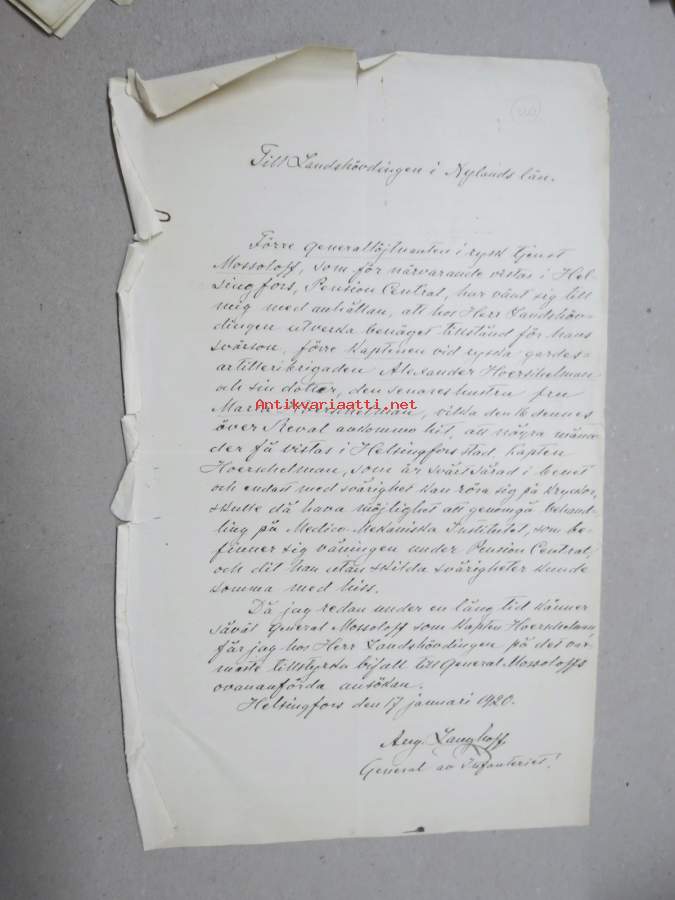 Till Landshövdingen i Nylands län.
Förre generallöjtnanten i rysk tjenst
Mossoloff, som för närvarande vistas i Hel-
singfors, Pension Central, har vänt sig till
mig med anhållan, att hos Herr Landshöv-
dingen utverka benäget tillstånd för hans
svärson, förre kaptenen vid ryska gardes-
artilleribrigaden Alexander Hoerschelman
och sin dotter, den senares hustru fru
Marie Hoerschelman, vilka den 16 dennes
över Reval ankommo hit, att några måna-
der få vistas i Helsingfors stad. Kapten
Hoerschelman, som är svårt sårad i benet
och endast med svårighet kan röra sig på kryckor,
skulle då hava möjlighet att genomgå behand-
ling på Medico Mekaniska Institutet, som be-
finner sig våningen under Pension Central,
och dit han utan skilda svårigheter kunde
komma med hiss.
Då jag redan under en lång tid känner
såväl General Mossoloff som Kapten Hoerschelman,
får jag hos Herr Landshövdingen på det var-
maste tillstyrka bifall till General Mossoloffs
ovananförda ansökan.
Helsingfors den 17 januari 1920.
Aug. Langhoff
General av Infanteriet.
Antikvariaatti.net